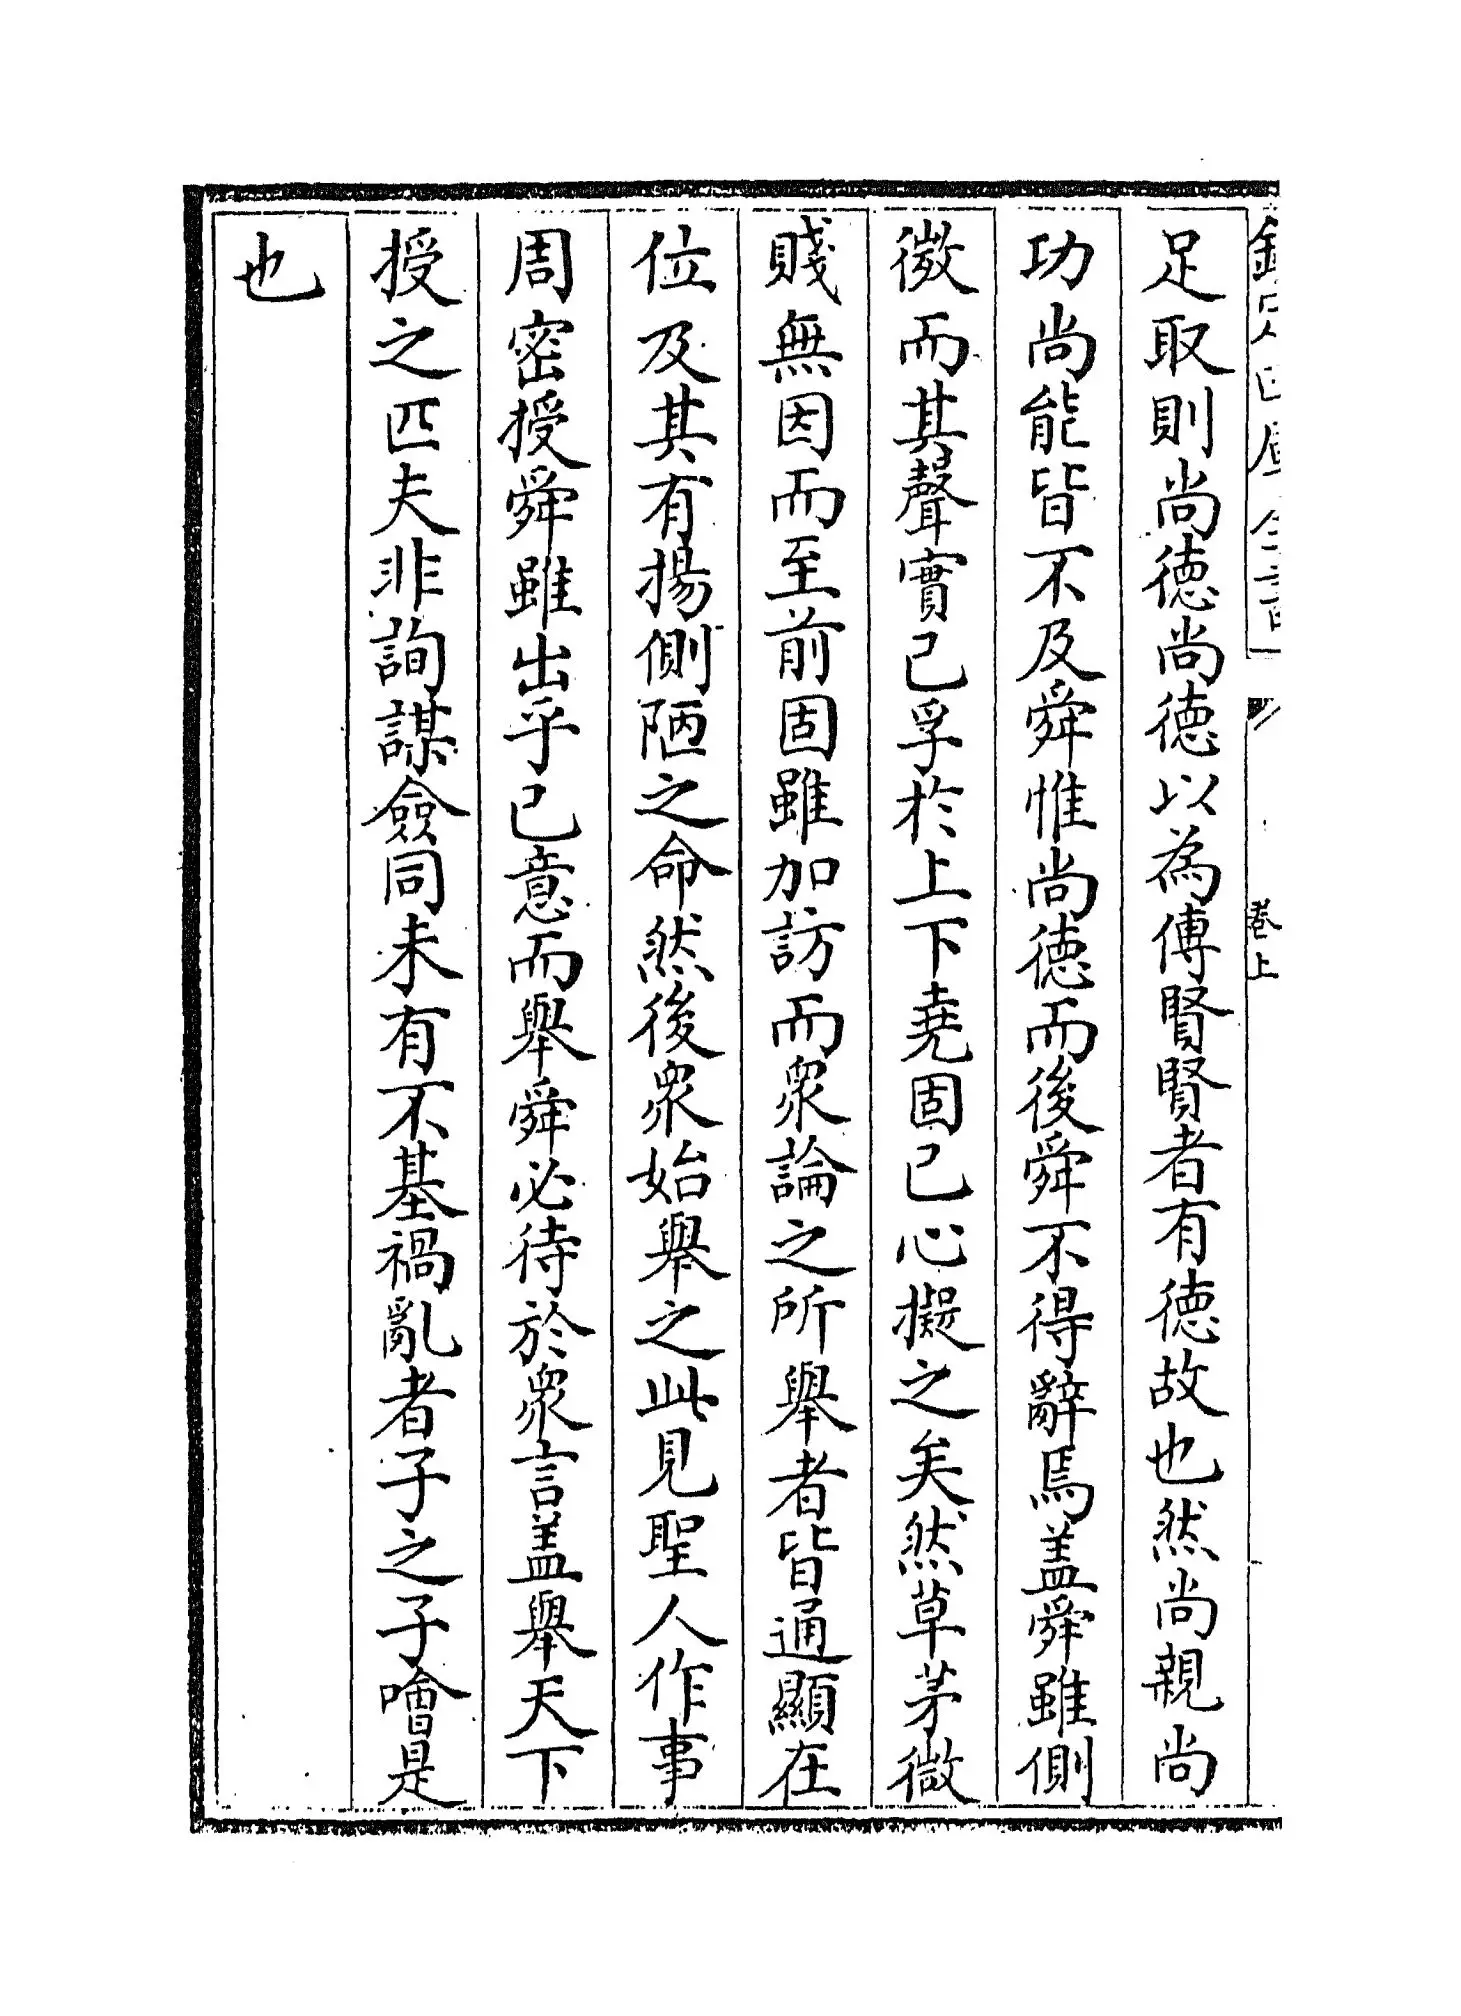 欽定四庫全書
卷上
足取則尚德尚德以為傳賢賢者有德故也然尚親尚
功尚能皆不及舜惟尚德而後舜不得辭焉盖舜雖側
微而其聲實已孚於上下堯固已心擬之矣然草茅微
賤無因而至前固雖加訪而衆論之所舉者皆通顯在
位及其有揚側陋之命然後衆始舉之此見聖人作事
周密授舜雖出乎已意而舉舜必待於衆言盖舉天下
授之匹夫非詢謀僉同未有不基禍亂者子之子噲是
也